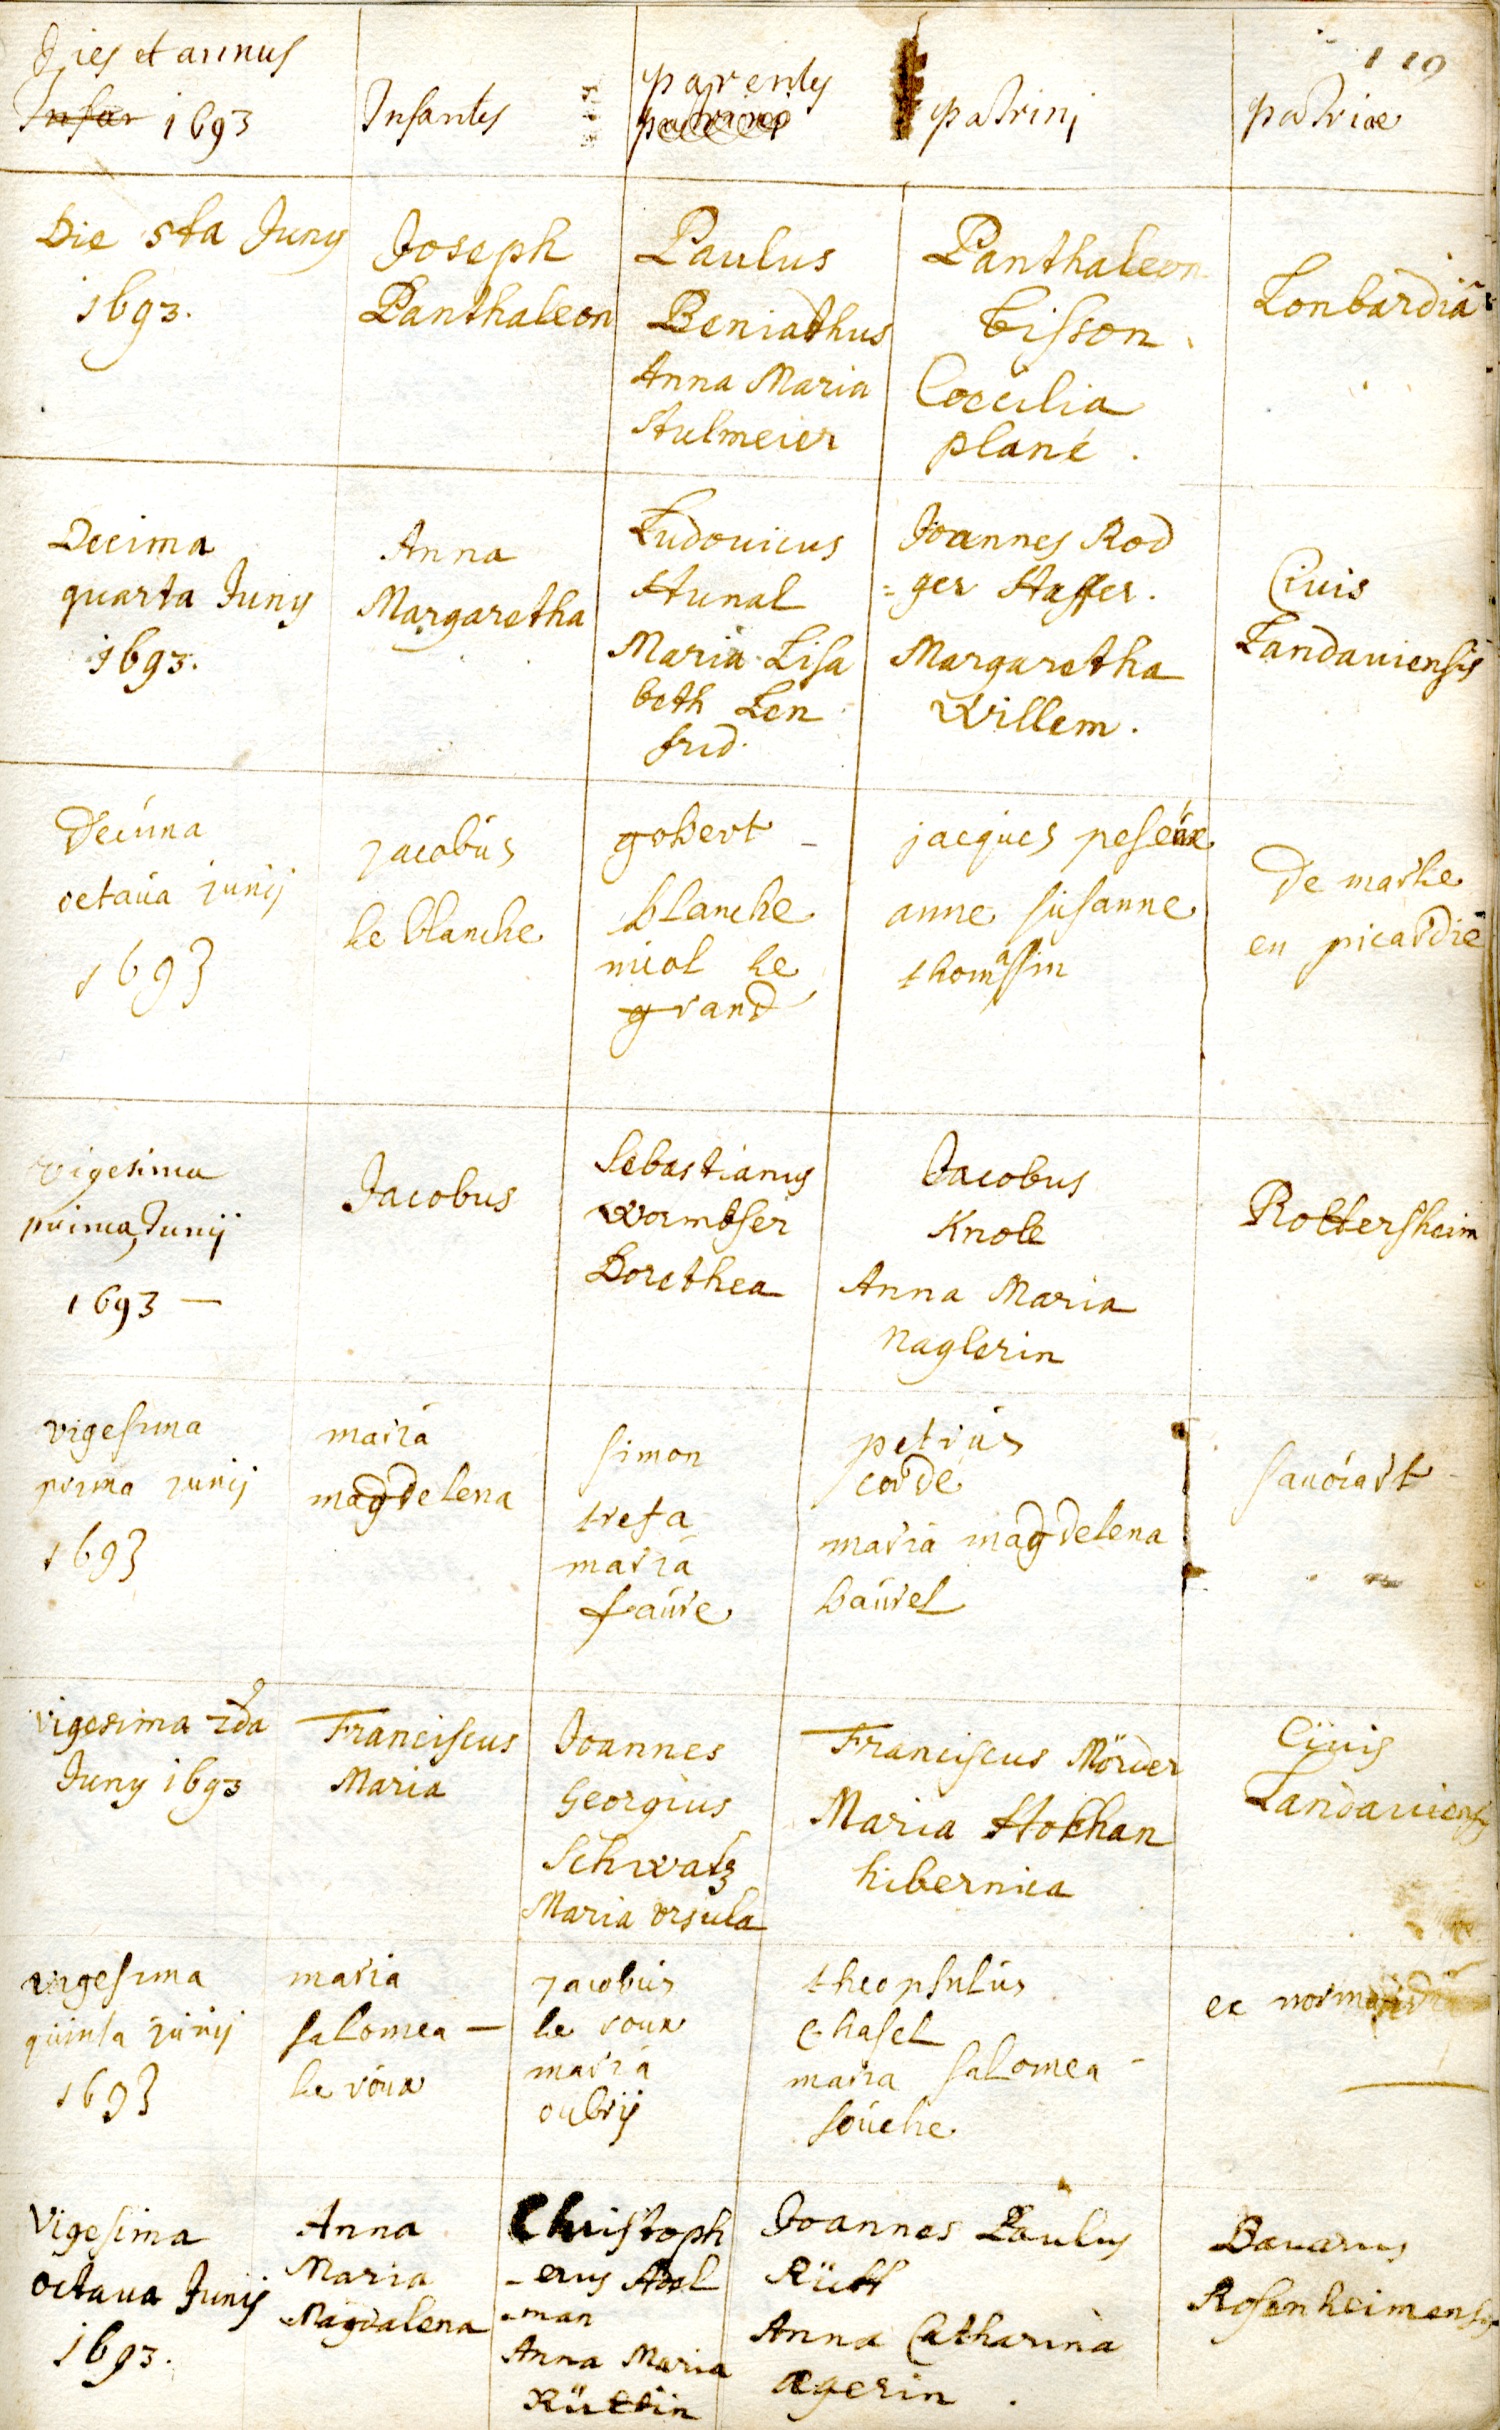 119
Dies et annus
Infan 1693
Infantes
parentes
patrini
patrini
patriae
Die 5ta Juny
1693.
Joseph
Panthaleon
Paulus
Beniathus
Anna Maria
Stulmeier
Panthaleon
bisson
Coecilia
plané.
Lonbardia
Decima
quarta Junij
1693.
Anna
Margaretha
Ludovicus
Hunal
Maria Lisa
beth Len
frid.
Joannes Rod
=ger Staffer.
Margaretha
Willem.
Civis
Landaviensis
Decima
octava junij
1693
jacobus
le blanche
gobert
blanche
nicol le
grand
jacques peseux
anne susanne
thomassin
de marle
en picardie
vigesima
prima Junij
1693
Jacobus
Sebastianus
Wormbser
Dorethea
Jacobus
Knoll
Anna Maria
Naglerin
Roltersheim
vigesima
prima junij
1693
maria
magdelena
simon
trefa
maria
faure
petrus
cordé
maria magdelena
baurel
savoiart
Vigesima 2da
Juny 1693
Franciscus
Maria
Joannes
Georgius
Schwatz
Maria Orsula
Franciscus Mörder
Maria Hokhan
hibernica
Civis
Landaviensis
vigesima
quinta junij
1693
maria
salomea
le roux
jacobus
le roux
maria
oubrij
theophilus
chasel
maria salomea
souche
ex normandia
Vigesima
octava Junij
1693.
Anna
Maria
Magdalena
Christoph
-erus Adel
-man
Anna Maria
Rüttin
Joannes Paulus
Rütt
Anna Catharina
ægerin.
Bavarus
Rosenheimensis